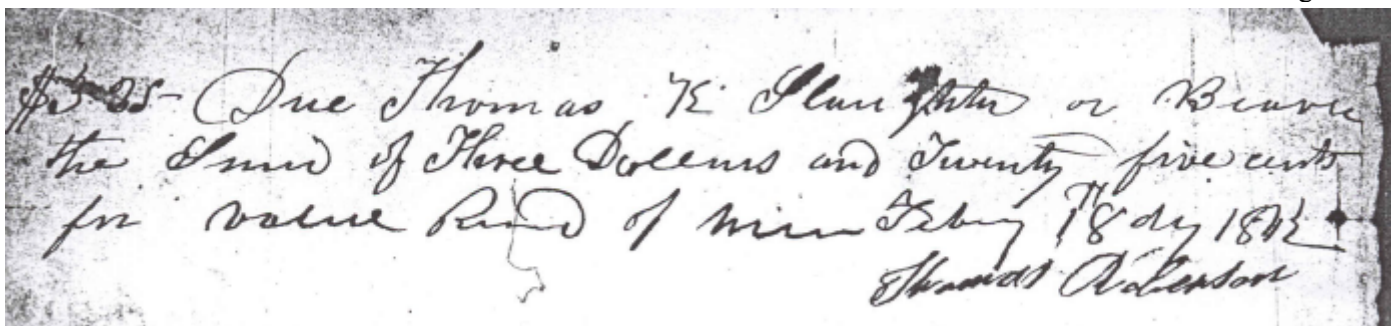 $3.25 Due Thomas K Slaughter or Bearer
the Sum of Three Dollars and Twenty five cents
for value Recd of him Febuy 18th day 184
Thomas Roberson